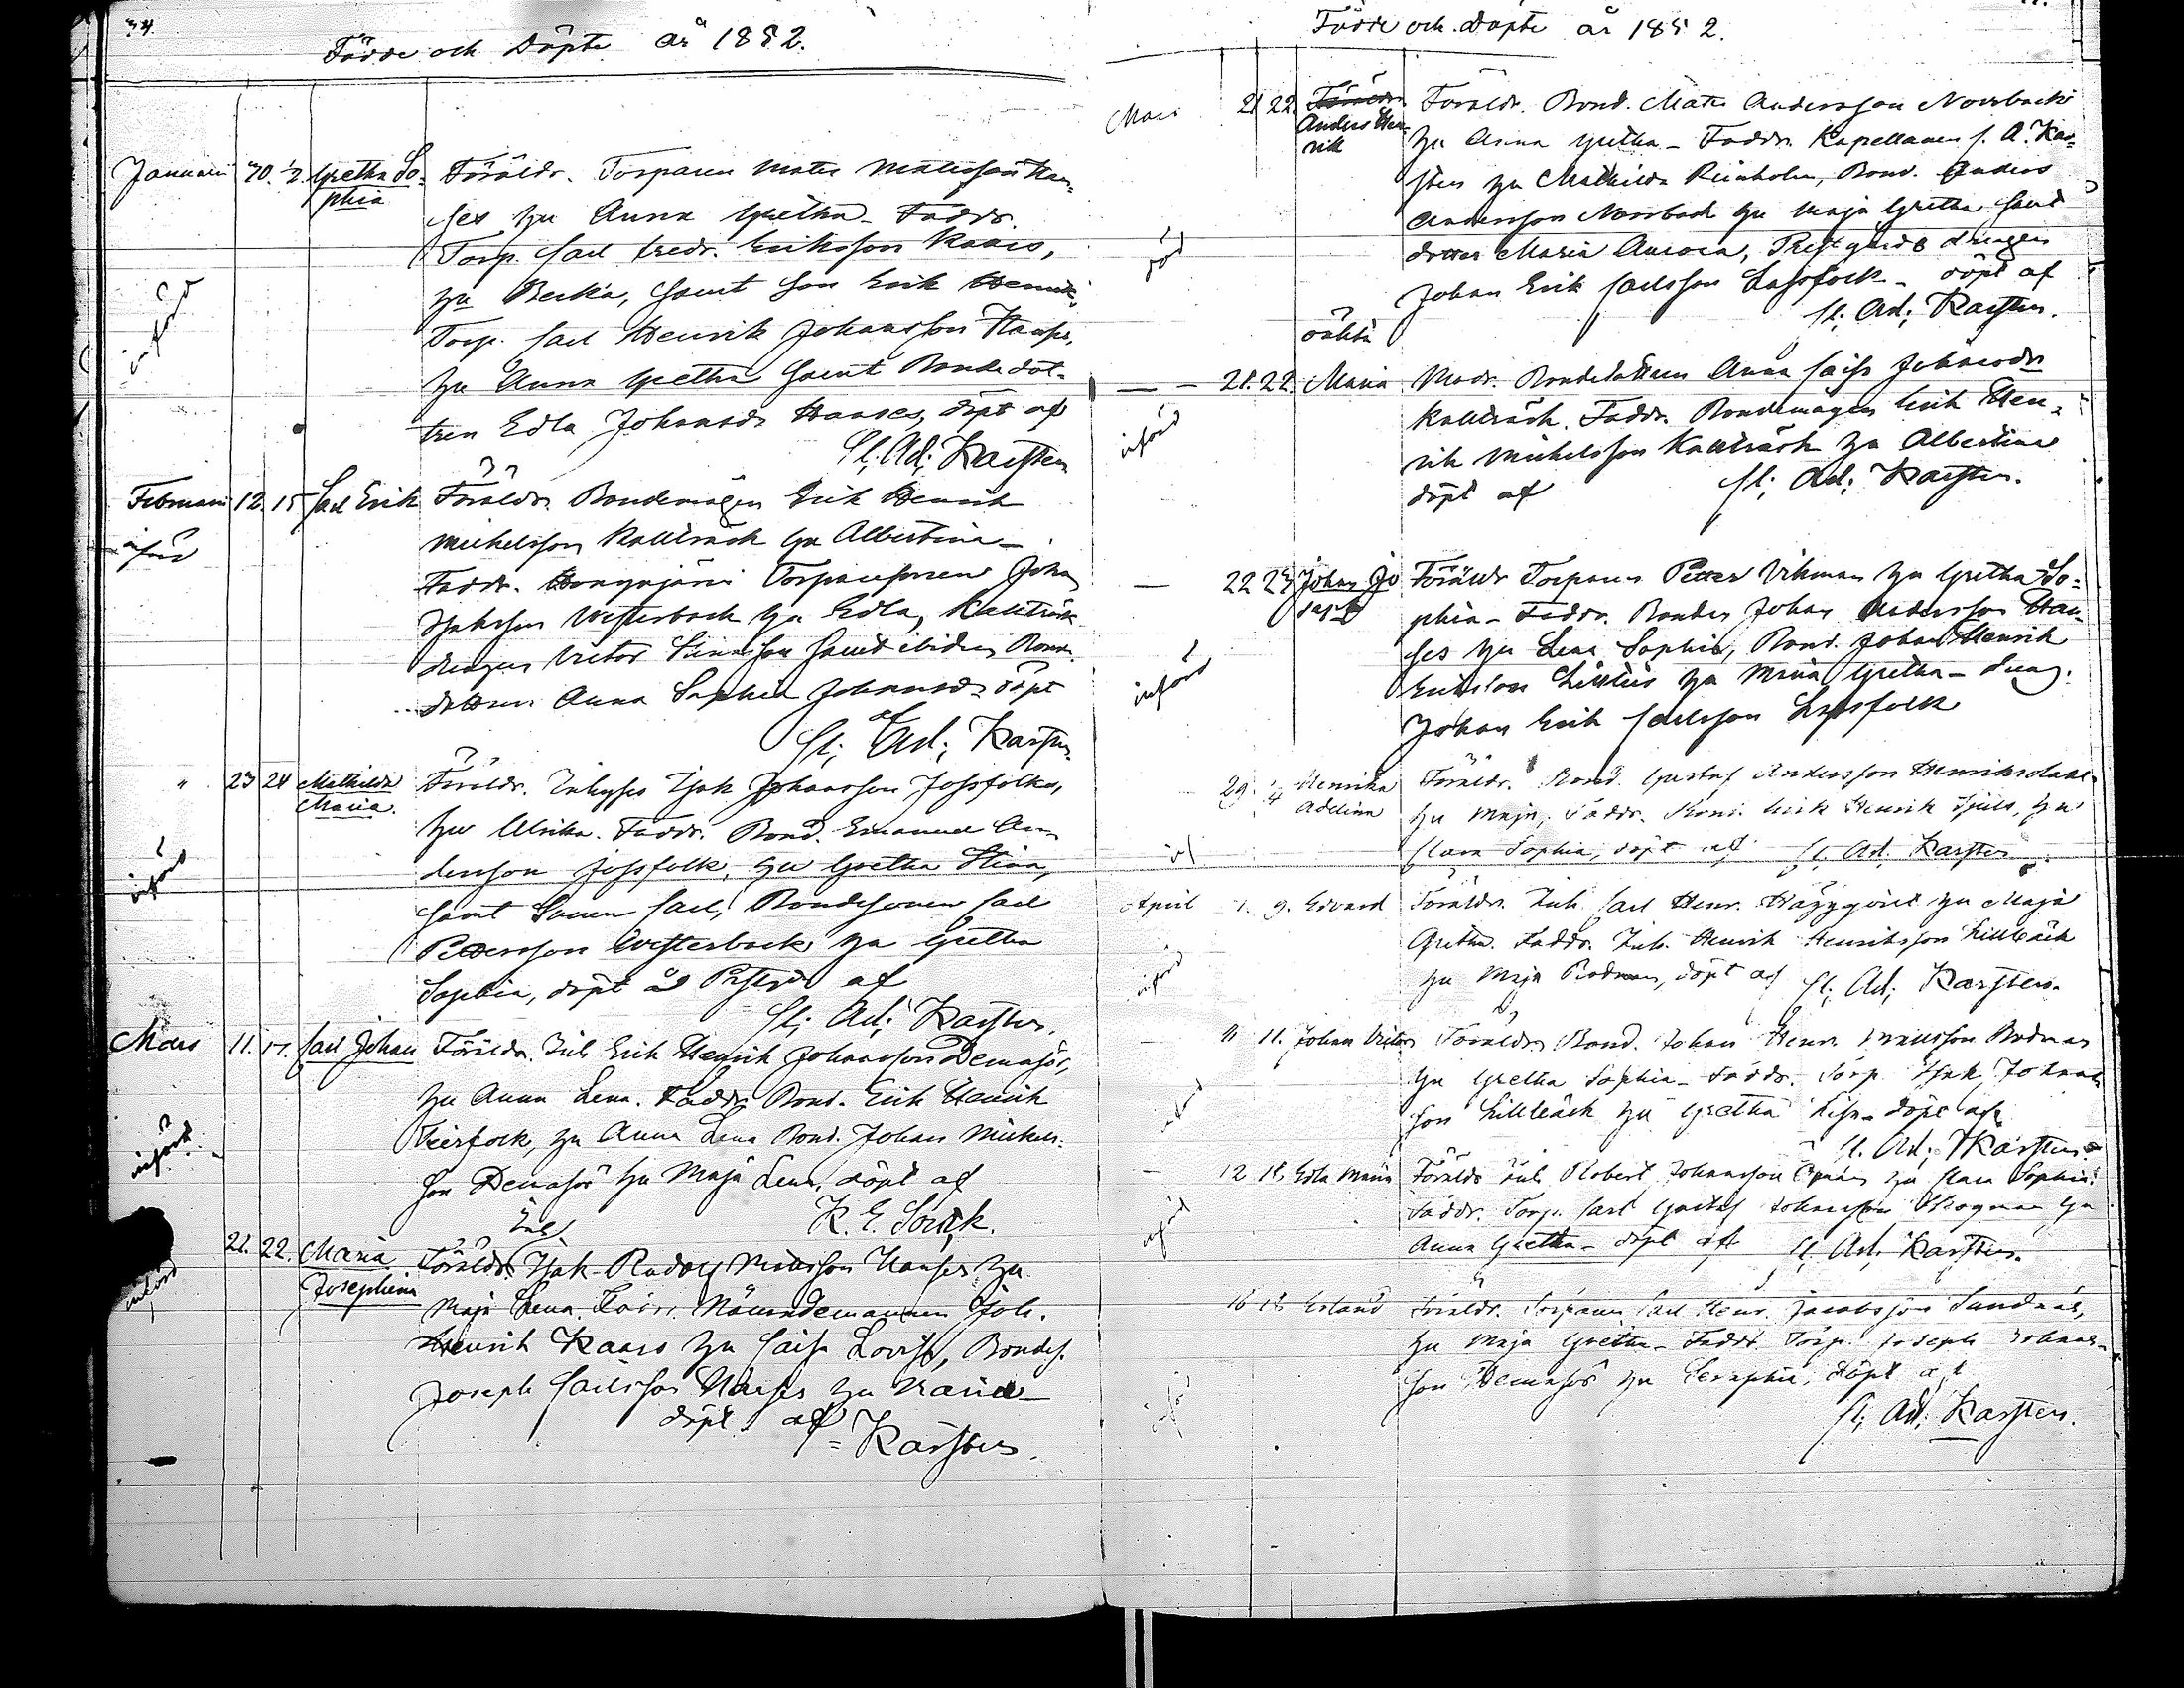 34.
Födde och Döpte år 1852.
Januari 30. 1/2. Gretha So-
phia
Föräldr. Torparen Mats Matsson Han-
ses hu Anna Gretha - Faddr.
Torp. Carl Fredr. Eriksson Kaars,
hu Becka, samt son Erik Henrik,
Torp. Carl Henrik Johansson Hanses,
hu Anna Gretha samt Bondedot-
tren Edla Johansdr Hanses, döpt af
C. Ad. Karsten
införd
Februari 12. 15 Carl Erik
Föräldr. Bondemågen Erik Henrik
Mickelsson Kallträsk hu Albertina -
Faddr. Torparesonen Johan
Isaksson Westerback hu Edla, Kallträsk
drängen Victor Samt ibidem Bond.
dottren Anna Sophia Johansdr döpt
af
C. Ad. Karsten.
införd
" 23 24 Mathilda
Maria.
Föräldr. Inhyses Isak Johansson Jossfolks,
hu Ulrika. Faddr. Bond. Emanuel An-
dersson Jossfolk, hu Gretha Stina,
samt Sonen Carl, Bondesonen Carl
Pettersson Westerback hu Gretha
Sophia, döpt af
C. Ad. Karsten.
införd
Mars 11. 17. Carl Johan
Föräldr. Inh Erik Henrik Johansson Demasör,
hu Anna Lena. Faddr. Bond. Erik Henrik
hu Anna Lena Bond. Johan Mickels-
son Demasör hu Maja Lena, döpt af
K. E.
införd
Inh.
21. 22. Maria
Josephina
Föräldr. Isak Rudolf Mattsson Hanses hu
Maja Lena. Nämndemannen Joh.
Henrik Kaars hu Caisa Lovisa, Bondes.
Joseph Carlsson Hanses hu Maria -
döpt af
Karsten.
införd
Födde och döpte år 1852.
Mars 21 22. Föräldr.
Anders Hen-
rik
Föräldr. Bond. Mats Andersson Norrback
hu Anna Gretha - Faddr. Kapellanen C. A. Kar-
sten hu Mathilda Reinholm, Bond. Anders
Andersson Norrback hu Maja Gretha samt
dotter Maria Aurora, Prestgårds drängen
Johan Erik Carlsson Lassfolk - döpt af
C. Ad. Karsten.
oäkta
— 21. 22. Maria
Modr. Bondedottren Anna Caisa Johansdr
Kallträsk. Faddr. Bondemågen Erik Hen-
rik Mickelsson Kallträsk hu Albertina
döpt af C. Ad. Karsten.
införd
— 22 23 Johan Jo
seph
Föräldr Torparen Petter Vikman hu Gretha So-
phia - Faddr. Bonden Johan Andersson Han-
ses hu Lena Sophia, Bond. Johan Henrik
Eriksson hu Maria Gretha - Dräng.
Johan Erik Carlsson Lassfolk
införd
29 1/4 Henrika
Adelina
Föräldr. Bond. Gustaf Andersson
hu Maja, Faddr. Erik Henrik hu
Clara Sophia, döpt af C. Ad. Karsten
April 1. 9. Edvard
Föräldr. Inh. Carl Henr. Häggqvist hu Maja
Gretha. Faddr. Inh. Henrik Henriksson Lillbäck
hu Maja Rodman, döpt af C. Ad. Karsten.
införd
— 11. Johan Victor
Föräldr. Bond. Johan Henr. Mattsson
hu Gretha Sophia - Faddr. Torp. Isak Johans-
son Lillbäck hu Gretha Lisa - döpt af
C. Ad. Karsten.
— 12 18. Edla Maria
Föräldr Inh Robert Johansson hu Clara Sophia.
Faddr. Torp. Carl Gustaf Johansson Skogman hu
Anna Gretha - döpt af C. Ad. Karsten.
införd
16 18 Erland
Föräldr. Torparen Carl Henr. Jacobsson Sundnäs,
hu Maja Gretha - Faddr. Torp. Joseph Johans-
son Demasör hu Seraphia, döpt af
C. Ad. Karsten.